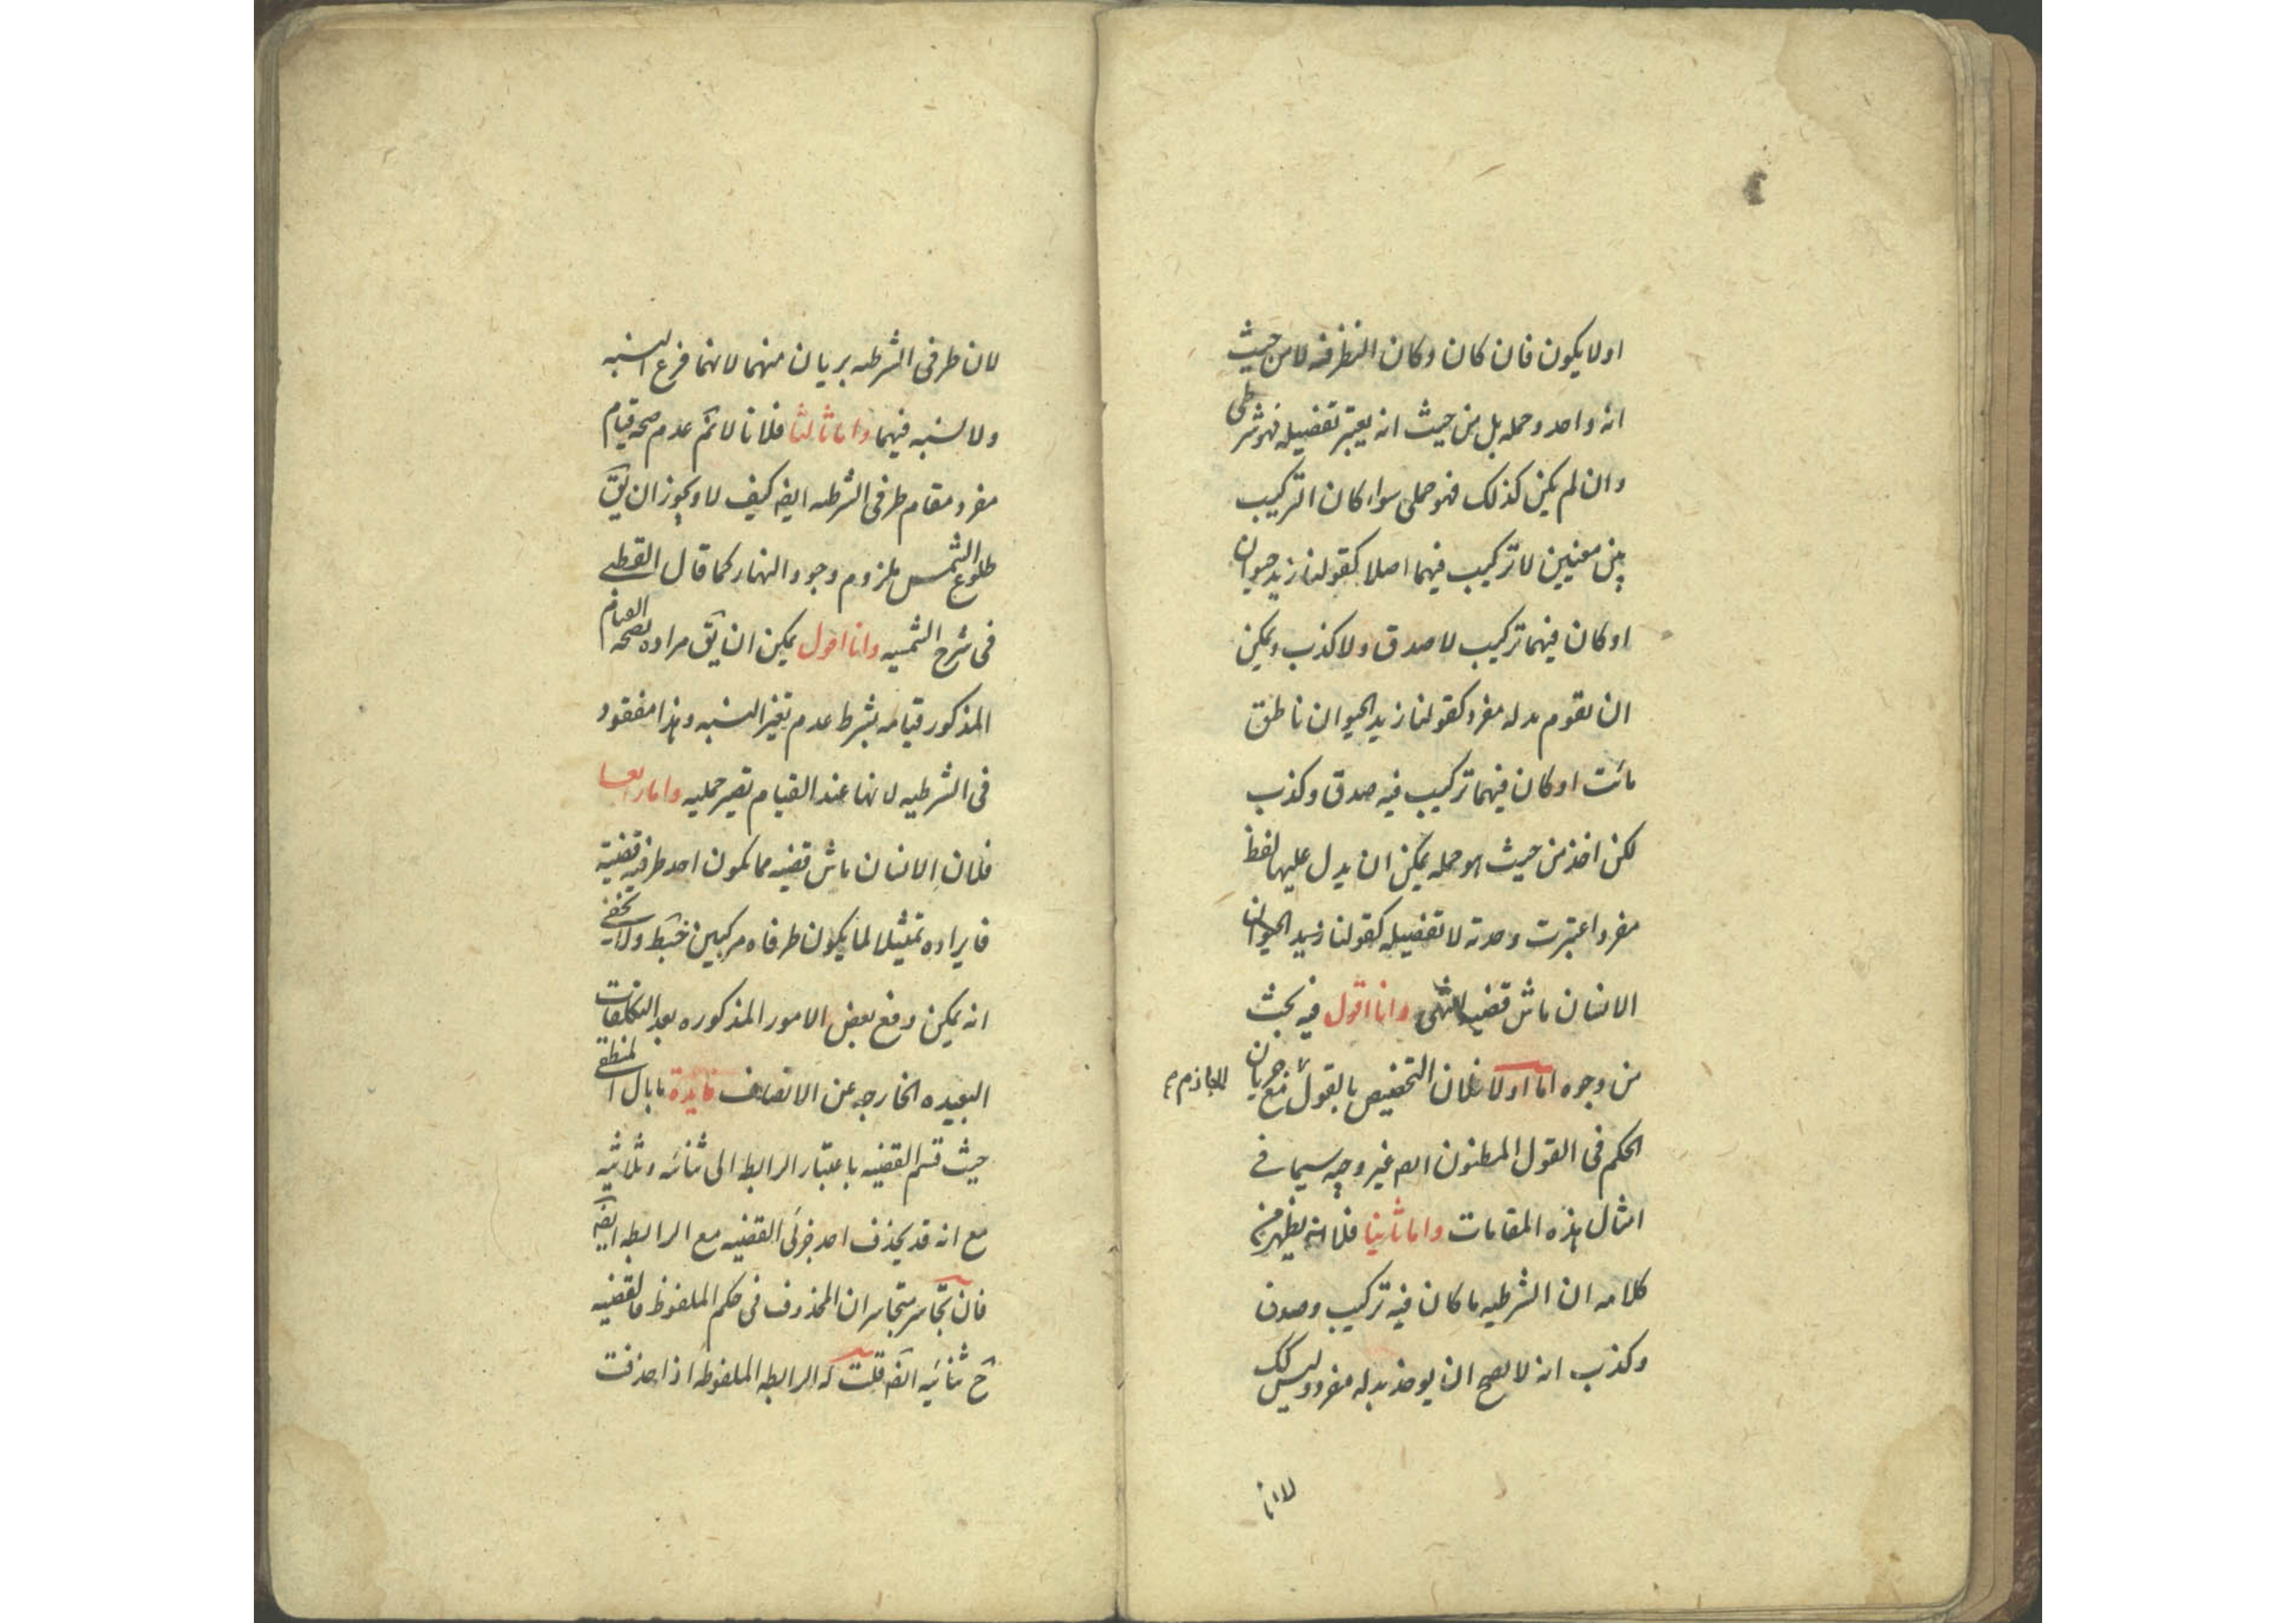 او لا يكون فان كان وكان النظر فيه لا من حيث
انه واحد وجمله بل من حيث انه يعتبر تفصيله فهو شرطى
وان لم يكن كذلك فهو حملى سواء كان التركيب
بين معنيين لا تركيب فيهما اصلا كقولنا زيد حيوان
او كان فيهما تركيب لا صدق ولا كذب ويمكن
ان يقوم بدله مفرد كقولنا زيد الحيوان ناطق
مائت او كان فيهما تركيب فيه صدق وكذب
لكن اخذ من حيث هو جمله يمكن ان يدل عليها لفظ
مفرد اعتبرت وحدته لا تفصيله كقولنا زيد الحيوان
الانسان ماش قضيه انتهى وانا اقول فيه بحث
من وجوه اما اولا فلان التخصيص بالقول الجازم مع جريان
الحكم فى القول المظنون ايضا غير وجيه سيما فى
امثال هذه المقامات واما ثانيا فلانه يظهر من
كلامه ان الشرطيه ما كان فيه تركيب وصدق
وكذب انه لا يصح ان يوخذ بدله مفرد وليس كك
لانا
لان طرفى الشرطيه بريان منهما لانهما فرع النسبه
ولا نسبه فيهما واما ثالثا فلانا لا نم عدم صحه قيام
مفرد مقام طرفى الشرطيه ايضه كيف لا ويجوز ان يق
طلوع الشمس ملزوم وجود النهار كما قال القطبى
فى شرح الشمسيه وانا اقول يمكن ان يق مراده بصحه القيام
المذكور قيامه بشرط عدم تغير النسبه وهذا مفقود
فى الشرطيه لانها عند القيام تصير حمليه واما رابعا
فلان الانسان ماش قضيه مما يكون احد طرفيه قضيه
فايراده تمثيلا لما يكون طرفاه مركبين خبط ولا يخفى
انه يمكن دفع بعض الامور المذكوره بعد التكلفات
البعيده الخارجه عن الانصاف فايدة ما بال المنطقى
حيث قسم القضيه باعتبار الرابطه الى ثنائيه وثلاثيه
مع انه قد يحذف احد جزئى القضيه مع الرابطه ايضه
فان تجاسر متجاسر ان المحذوف فى حكم الملفوظ فالقضيه
ح ثنائيه ايضه قلت له الرابطه الملفوظه اذا حذفت